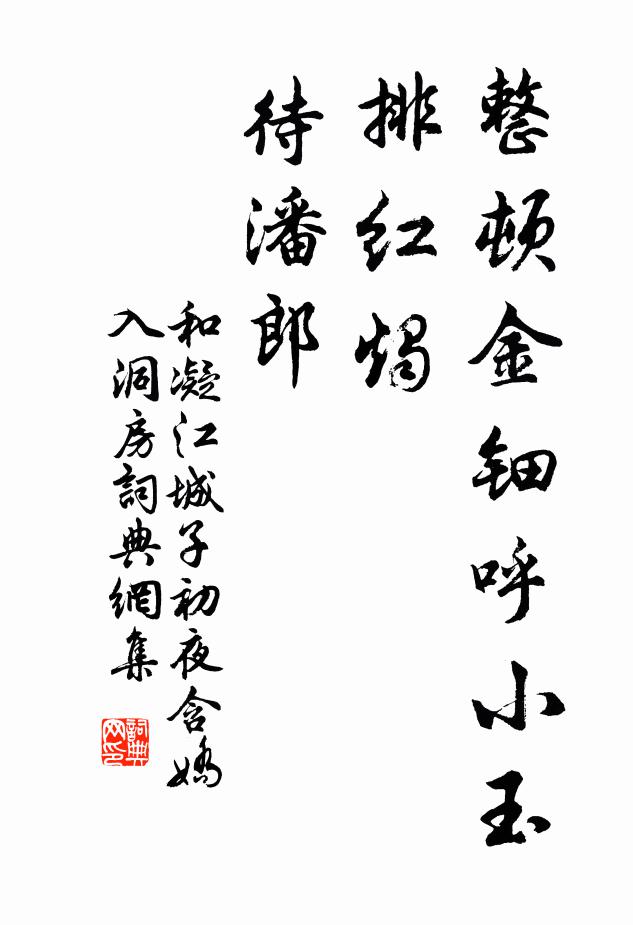 整顿金钿呼小玉
排红烛
待潘郎
和凝江城子初夜含嬌
入洞房詞典網集
詞典
网印